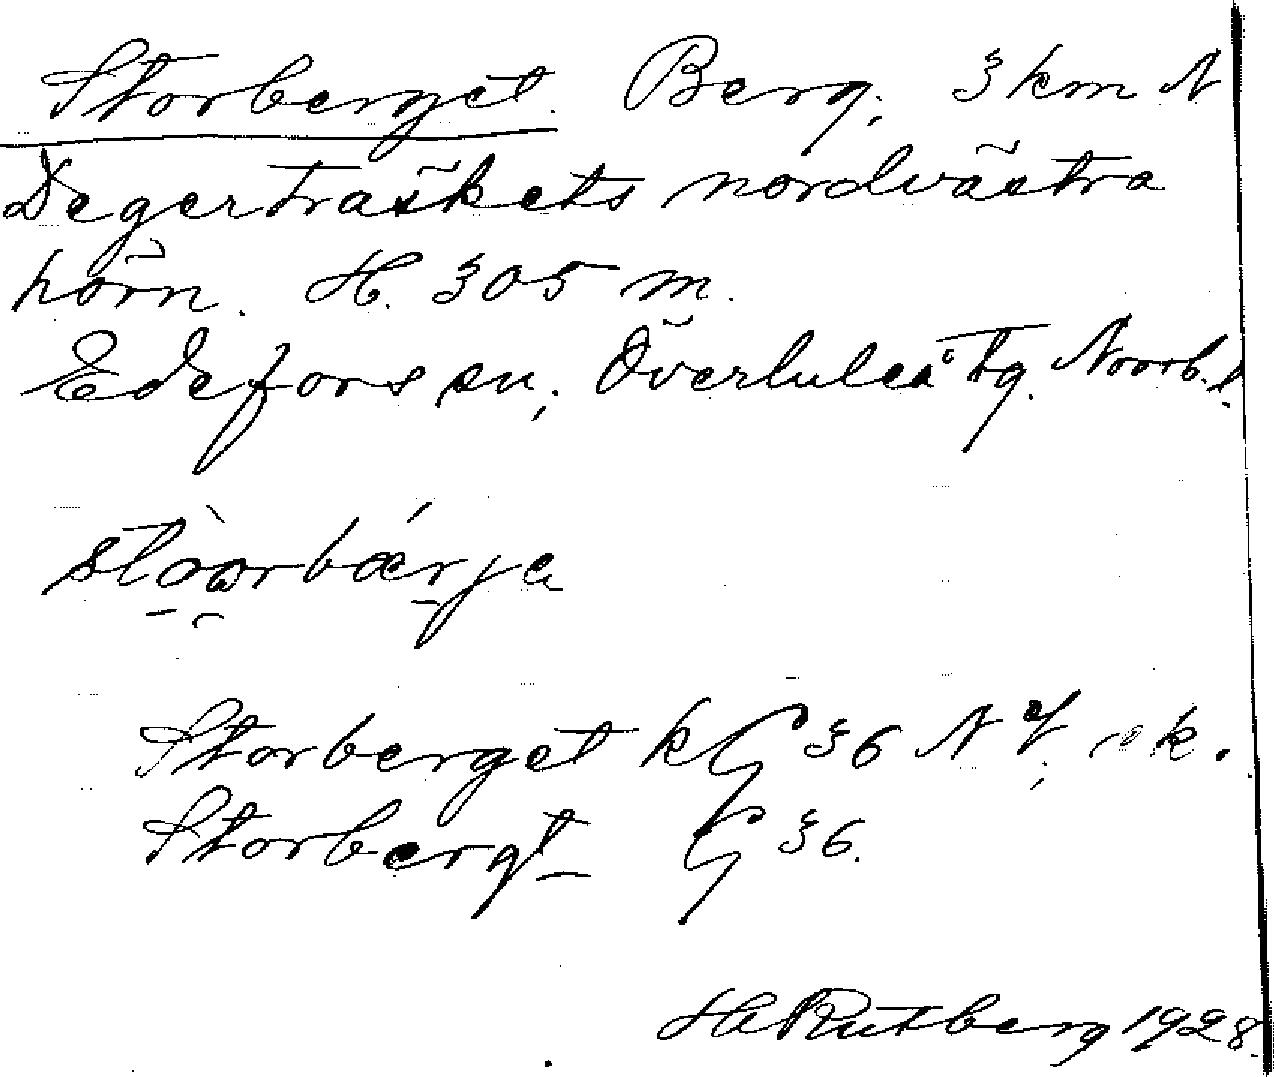 Storberget. Berg, 3 km N
Degerträskets nordvästra
hörn. H. 305 m.
Edefors sn, Överluleå tg. Norrb. l.
stòorbǽrje
Storberget k G 36 N V, k.
Storbergt_ G 36.
H Rutberg 1928.